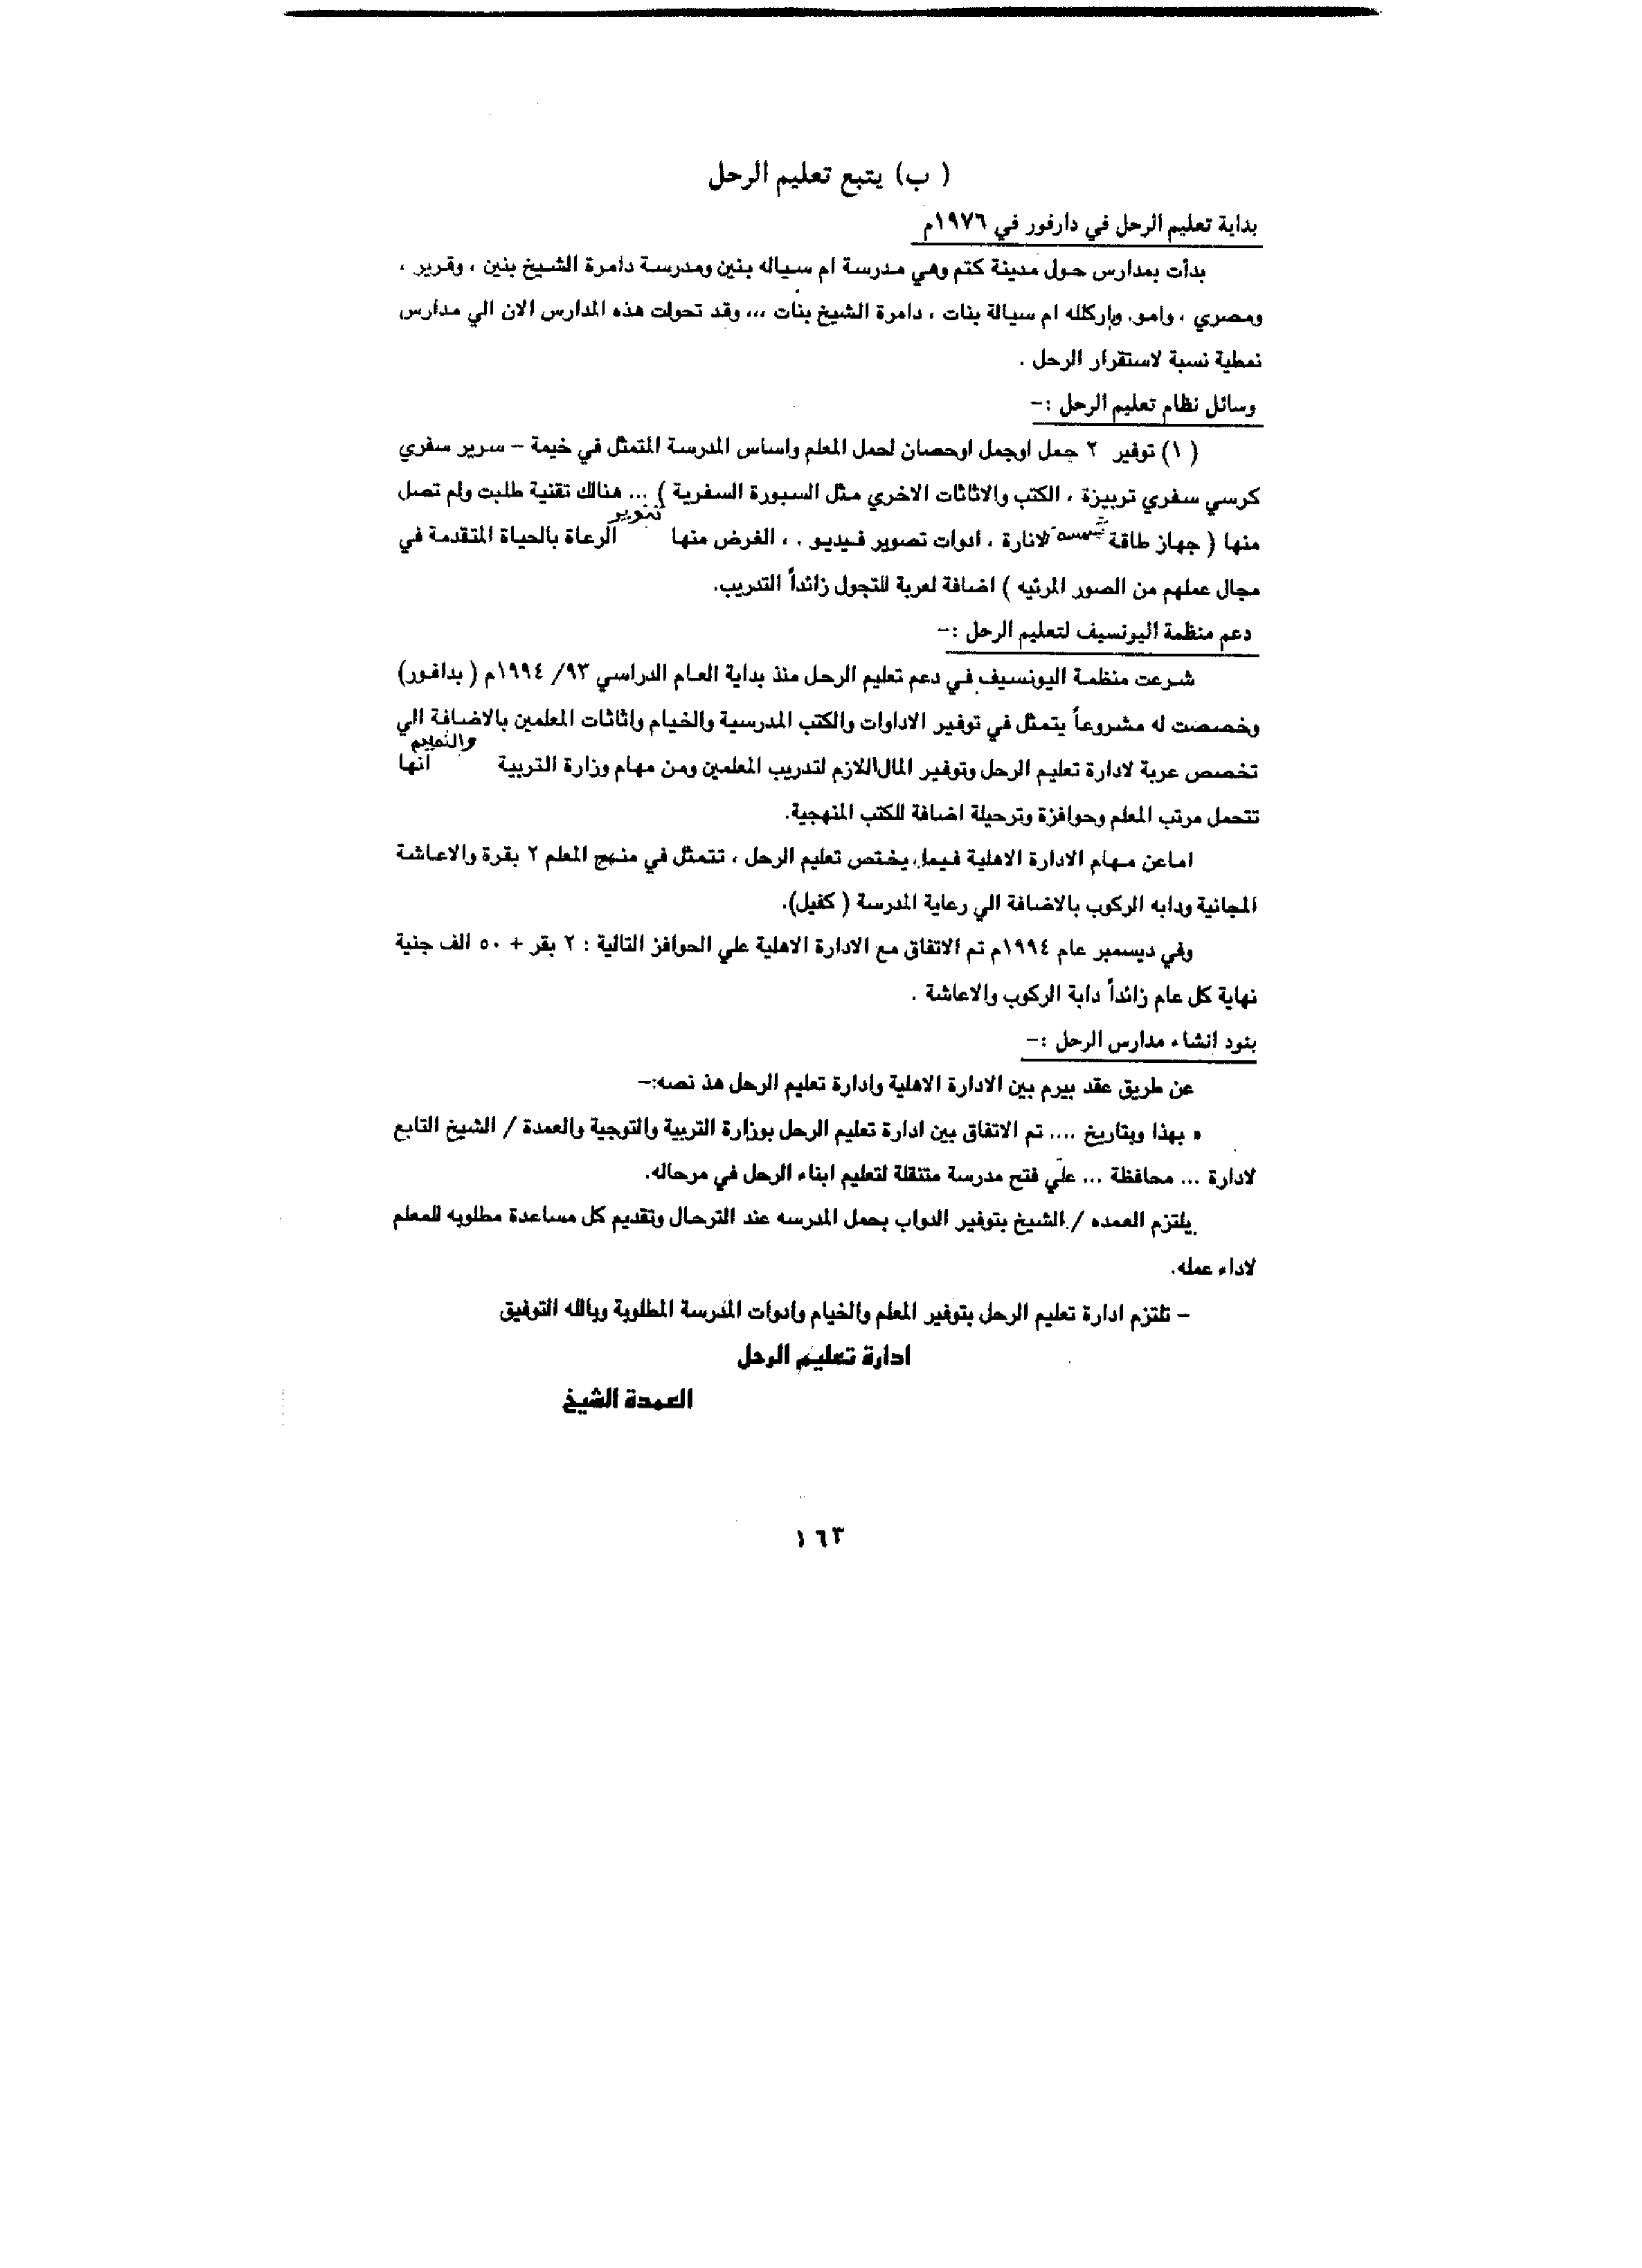 ( ب) يتبع تعليم الرحل
بداية تعليم الرحل في دارفور في ١٩٧٦م
بدأت بمدارس حول مدينة كتم وهي مدرسة ام سياله بنين ومدرسة دامرة الشيخ بنين ، وقرير ،
ومصري ، وامو. واركلله ام سيالة بنات ، دامرة الشيخ بنات ،،، وقد تحولت هذه المدارس الان الي مدارس
نمطية نسبة لاستقرار الرحل .
وسائل نظام تعليم الرحل :-
( ١) توفير ٢ جمل اوجمل اوحصان لحمل المعلم واساس المدرسة المتمثل في خيمة - سرير سفري
كرسي سفري تربيزة ، الكتب والاثاثات الاخري مثل السبورة السفرية ) ... هنالك تقنية طلبت ولم تصل
منها ( جهاز طاقة شمسية لانارة ، ادوات تصوير فيديو . ، الغرض منها تنوير الرعاة بالحياة المتقدمة في
مجال عملهم من الصور المرئيه ) اضافة لعربة للتجول زائداً التدريب.
دعم منظمة اليونسيف لتعليم الرحل :-
شرعت منظمة اليونسيف في دعم تعليم الرحل منذ بداية العام الدراسي ٩٣/ ١٩٩٤م ( بدافور)
وخصصت له مشروعاً يتمثل في توفير الاداوات والكتب المدرسية والخيام واثاثات المعلمين بالاضافة الي
تخصص عربة لادارة تعليم الرحل وتوفير المال اللازم لتدريب المعلمين ومن مهام وزارة التربية والتعليم انها
تتحمل مرتب المعلم وحوافزة وترحيلة اضافة للكتب المنهجية.
اماعن مهام الادارة الاهلية فيما يختص تعليم الرحل ، تتمثل في منهج المعلم ٢ بقرة والاعاشة
المجانية ودابه الركوب بالاضافة الي رعاية المدرسة ( كفيل).
وفي ديسمبر عام ١٩٩٤م تم الاتفاق مع الادارة الاهلية علي الحوافز التالية : ٢ بقر + ٥٠ الف جنية
نهاية كل عام زائداً دابة الركوب والاعاشة .
بنود انشاء مدارس الرحل :-
عن طريق عقد بيرم بين الادارة الاهلية وادارة تعليم الرحل هذ نصه:-
« بهذا وبتاريخ .... تم الاتفاق بين ادارة تعليم الرحل بوزارة التربية والتوجية والعمدة / الشيخ التابع
لادارة ... محافظة ... علي فتح مدرسة متنقلة لتعليم ابناء الرحل في مرحاله.
يلتزم العمده / الشيخ بتوفير الدواب بحمل المدرسه عند الترحال وتقديم كل مساعدة مطلوبه للمعلم
لاداء عمله.
- تلتزم ادارة تعليم الرحل بتوفير المعلم والخيام وادوات المدرسة المطلوبة وبالله التوفيق
ادارة تعليم الرحل
العمدة الشيخ
١٦٣